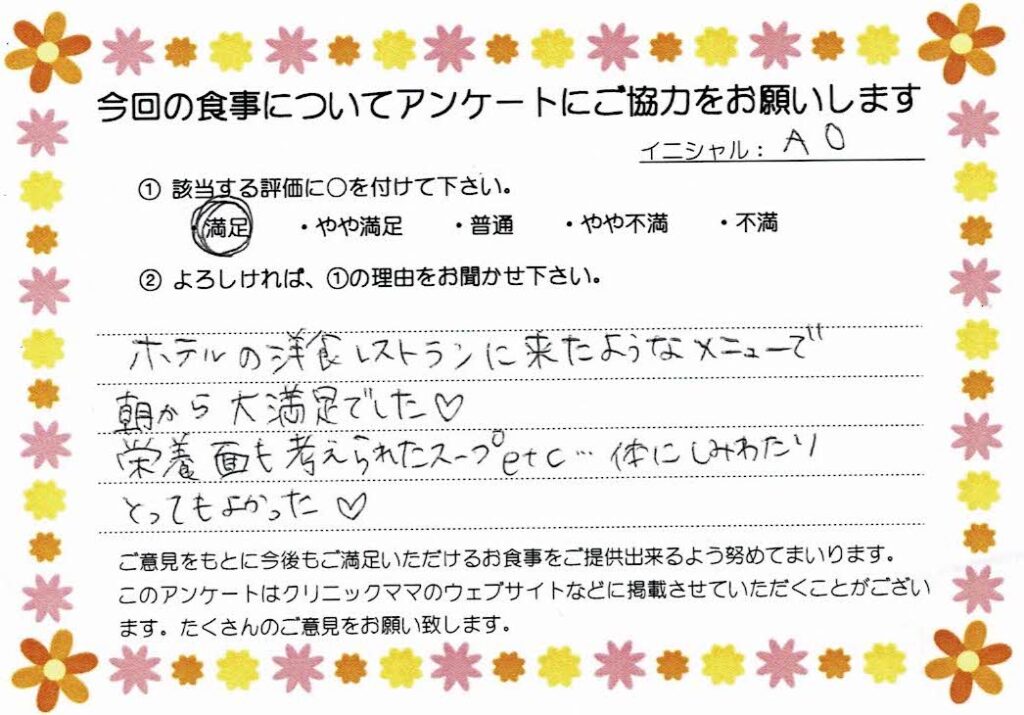 今回の食事についてアンケートにご協力をお願いします
イニシャル： A O
① 該当する評価に○を付けて下さい。
・満足 ・やや満足 ・普通 ・やや不満 ・不満
② よろしければ、①の理由をお聞かせ下さい。
ホテルの洋食レストランに来たようなメニューで
朝から大満足でした♡
栄養面も考えられたスープetc… 体にしみわたり
とってもよかった♡
ご意見をもとに今後もご満足いただけるお食事をご提供出来るよう努めてまいります。
このアンケートはクリニックママのウェブサイトなどに掲載させていただくことがござい
ます。たくさんのご意見をお願い致します。